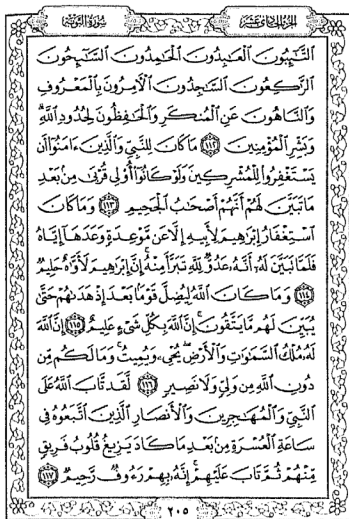 الجُزْءُ الحَادِي عَشَرَ
سُورَةُ التَّوْبَةِ
التَّٰٓئِبُونَ الْعَٰبِدُونَ الْحَٰمِدُونَ السَّٰٓئِحُونَ
الرَّٰكِعُونَ السَّٰجِدُونَ الْءَامِرُونَ بِالْمَعْرُوفِ
وَالنَّاهُونَ عَنِ الْمُنكَرِ وَالْحَٰفِظُونَ لِحُدُودِ اللَّهِ ۗ
وَبَشِّرِ الْمُؤْمِنِينَ ١١٢ مَا كَانَ لِلنَّبِيِّ وَالَّذِينَ ءَامَنُوٓا۟ أَن
يَسْتَغْفِرُوا۟ لِلْمُشْرِكِينَ وَلَوْ كَانُوٓا۟ أُو۟لِى قُرْبَىٰ مِنۢ بَعْدِ
مَا تَبَيَّنَ لَهُمْ أَنَّهُمْ أَصْحَٰبُ الْجَحِيمِ ١١٣ وَمَا كَانَ
اسْتِغْفَارُ إِبْرَٰهِيمَ لِأَبِيهِ إِلَّا عَن مَّوْعِدَةٍ وَعَدَهَآ إِيَّاهُ
فَلَمَّا تَبَيَّنَ لَهُۥٓ أَنَّهُۥ عَدُوٌّ لِّلَّهِ تَبَرَّأَ مِنْهُ ۚ إِنَّ إِبْرَٰهِيمَ لَأَوَّٰهٌ حَلِيمٌ
١١٤ وَمَا كَانَ اللَّهُ لِيُضِلَّ قَوْمًۢا بَعْدَ إِذْ هَدَىٰهُمْ حَتَّىٰ
يُبَيِّنَ لَهُم مَّا يَتَّقُونَ ۚ إِنَّ اللَّهَ بِكُلِّ شَىْءٍ عَلِيمٌ ١١٥ إِنَّ اللَّهَ
لَهُۥ مُلْكُ السَّمَٰوَٰتِ وَالْأَرْضِ ۖ يُحْىِۦ وَيُمِيتُ ۚ وَمَا لَكُم مِّن
دُونِ اللَّهِ مِن وَلِىٍّ وَلَا نَصِيرٍ ١١٦ لَّقَد تَّابَ اللَّهُ عَلَى
النَّبِىِّ وَالْمُهَٰجِرِينَ وَالْأَنصَارِ الَّذِينَ اتَّبَعُوهُ فِى
سَاعَةِ الْعُسْرَةِ مِنۢ بَعْدِ مَا كَادَ يَزِيغُ قُلُوبُ فَرِيقٍ
مِّنْهُمْ ثُمَّ تَابَ عَلَيْهِمْ ۚ إِنَّهُۥ بِهِمْ رَءُوفٌ رَّحِيمٌ ١١٧
٢٠٥